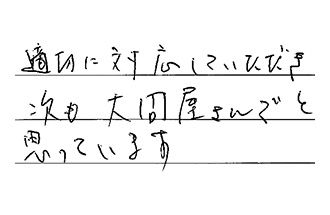 適切に対応していただき
次も大問屋さんでと
思っています